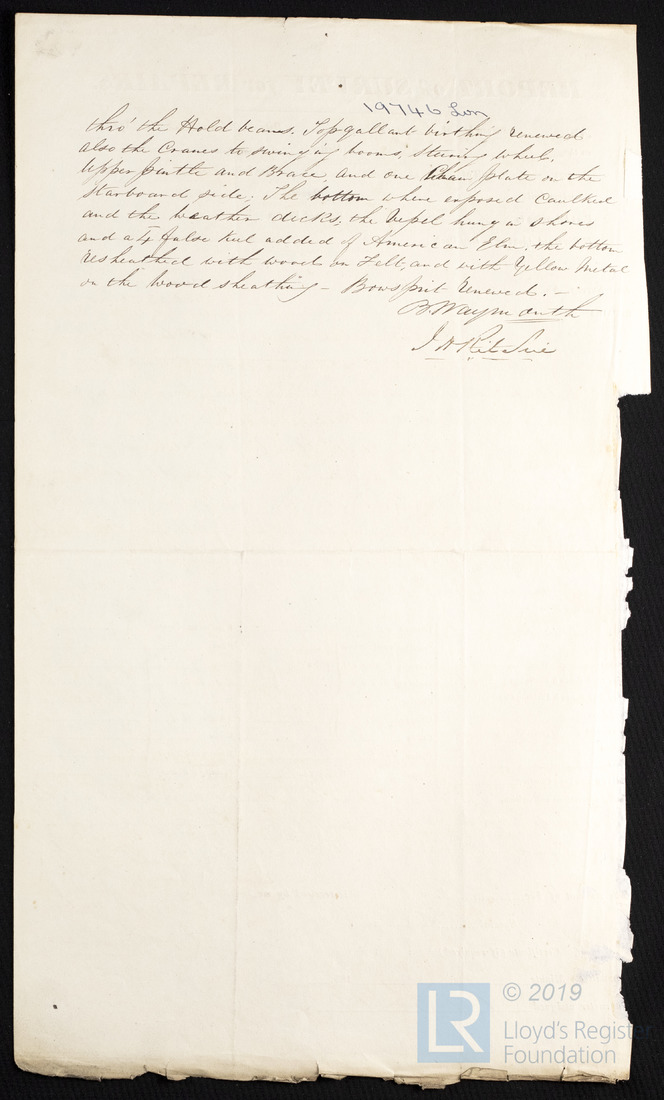 19746 Lon
thro' the Hold beams. Topgallant birthing renewed
also the Cranes to swinging booms, steering wheel,
Upper pintle and Brace, and one Chain plate on the
starboard side; The bottom where exposed Caulked
and the weather decks; the Vessel hung in shores
and a false keel added of American Elm; the bottom
resheathed with wood on Felt, and with Yellow Metal
on the wood sheathing - Bowsprit renewed. -
B. Waymouth
J H Ritchie
LR
© 2019
Lloyd's Register
Foundation